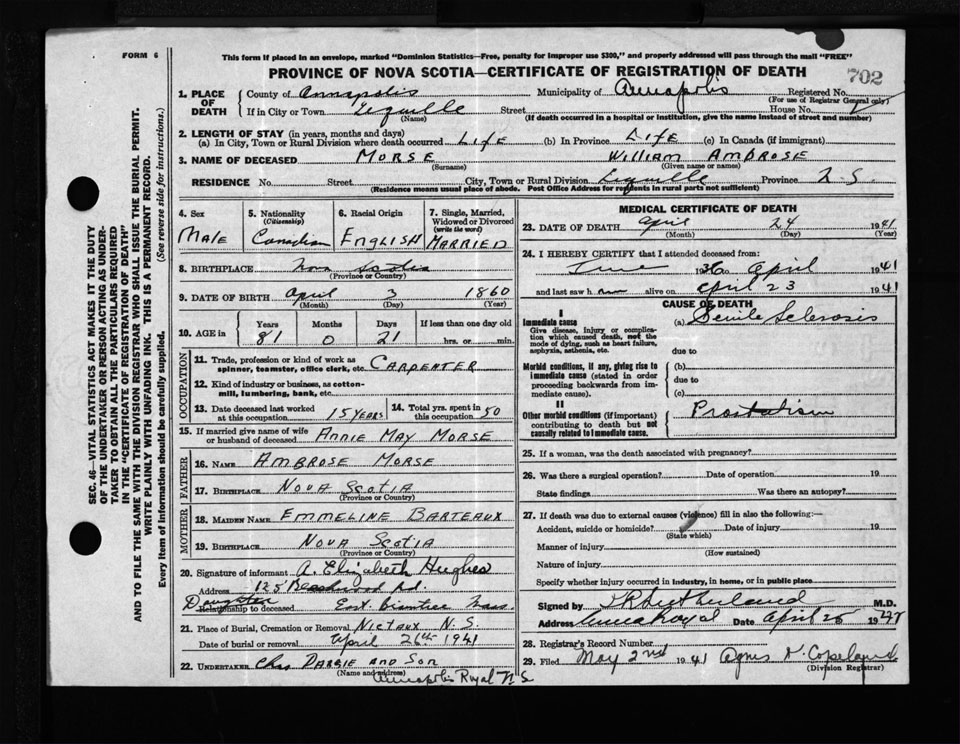 FORM 6
This form if placed in an envelope, marked "Dominion Statistics—Free, penalty for improper use $300," and properly addressed will pass through the mail "FREE"
PROVINCE OF NOVA SCOTIA—CERTIFICATE OF REGISTRATION OF DEATH
702
SEC. 46—VITAL STATISTICS ACT MAKES IT THE DUTY
OF THE UNDERTAKER OR PERSON ACTING AS UNDER-
TAKER TO OBTAIN ALL THE PARTICULARS REQUIRED
IN THE "CERTIFICATE OF REGISTRATION OF DEATH"
AND TO FILE THE SAME WITH THE DIVISION REGISTRAR WHO SHALL ISSUE THE BURIAL PERMIT.
WRITE PLAINLY WITH UNFADING INK. THIS IS A PERMANENT RECORD.
Every item of information should be carefully supplied. (See reverse side for instructions.)
1. PLACE OF DEATH
County of Annapolis Municipality of Annapolis Registered No.
(For use of Registrar General only)
If in City or Town Lequille Street House No.
(Name) (If death occurred in a hospital or institution, give the name instead of street and number)
2. LENGTH OF STAY (in years, months and days)
(a) In City, Town or Rural Division where death occurred LIFE (b) In Province LIFE (c) In Canada (if immigrant)
3. NAME OF DECEASED MORSE WILLIAM AMBROSE
(Surname) (Given name or names)
RESIDENCE No. Street City, Town or Rural Division Lequille Province N.S.
(Residence means usual place of abode. Post Office Address for residents in rural parts not sufficient)
4. Sex
Male
5. Nationality
(Citizenship)
Canadian
6. Racial Origin
ENGLISH
7. Single, Married,
Widowed or Divorced
(write the word)
MARRIED
8. BIRTHPLACE Nova Scotia
(Province or Country)
9. DATE OF BIRTH April 3 1860
(Month) (Day) (Year)
10. AGE in
Years Months Days If less than one day old
81 0 21 hrs. or min.
OCCUPATION
11. Trade, profession or kind of work as
spinner, teamster, office clerk, etc. CARPENTER
12. Kind of industry or business, as cotton-
mill, lumbering, bank, etc.
13. Date deceased last worked
at this occupation 15 YEARS
14. Total yrs. spent in
this occupation 50
15. If married give name of wife
or husband of deceased ANNIE MAY MORSE
FATHER
16. NAME AMBROSE MORSE
17. BIRTHPLACE NOVA SCOTIA
(Province or Country)
MOTHER
18. MAIDEN NAME EMMELINE BARTEAUX
19. BIRTHPLACE NOVA SCOTIA
(Province or Country)
20. Signature of informant A. Elizabeth Hughes
Address 125 Rd.
Daughter
Relationship to deceased East Mass
21. Place of Burial, Cremation or Removal NICTAUX N.S.
Date of burial or removal April 26th 1941
22. UNDERTAKER Chas DARGIE AND SON
(Name and address)
Annapolis Royal N S
MEDICAL CERTIFICATE OF DEATH
23. DATE OF DEATH April 24 1941
(Month) (Day) (Year)
24. I HEREBY CERTIFY that I attended deceased from:
1936 to April 1941
and last saw h alive on April 23 1941
CAUSE OF DEATH
I
Immediate cause
Give disease, injury or complica-
tion which caused death, not the
mode of dying, such as heart failure,
asphyxia, asthenia, etc.
(a) Senile Sclerosis
due to
Morbid conditions, if any, giving rise to
immediate cause (stated in order
proceeding backwards from im-
mediate cause).
(b)
due to
(c)
II
Other morbid conditions (if important)
contributing to death but not
causally related to immediate cause.
Prostatism
25. If a woman, was the death associated with pregnancy?
26. Was there a surgical operation? Date of operation 19
State findings Was there an autopsy?
27. If death was due to external causes (violence) fill in also the following:—
Accident, suicide or homicide? Date of injury 19
(State which)
Manner of injury
(How sustained)
Nature of injury
Specify whether injury occurred in industry, in home, or in public place
Signed by M.D.
Address Anna Royal Date April 25 19
28. Registrar's Record Number
29. Filed May 2nd 1941 Agnes Copeland
(Division Registrar)